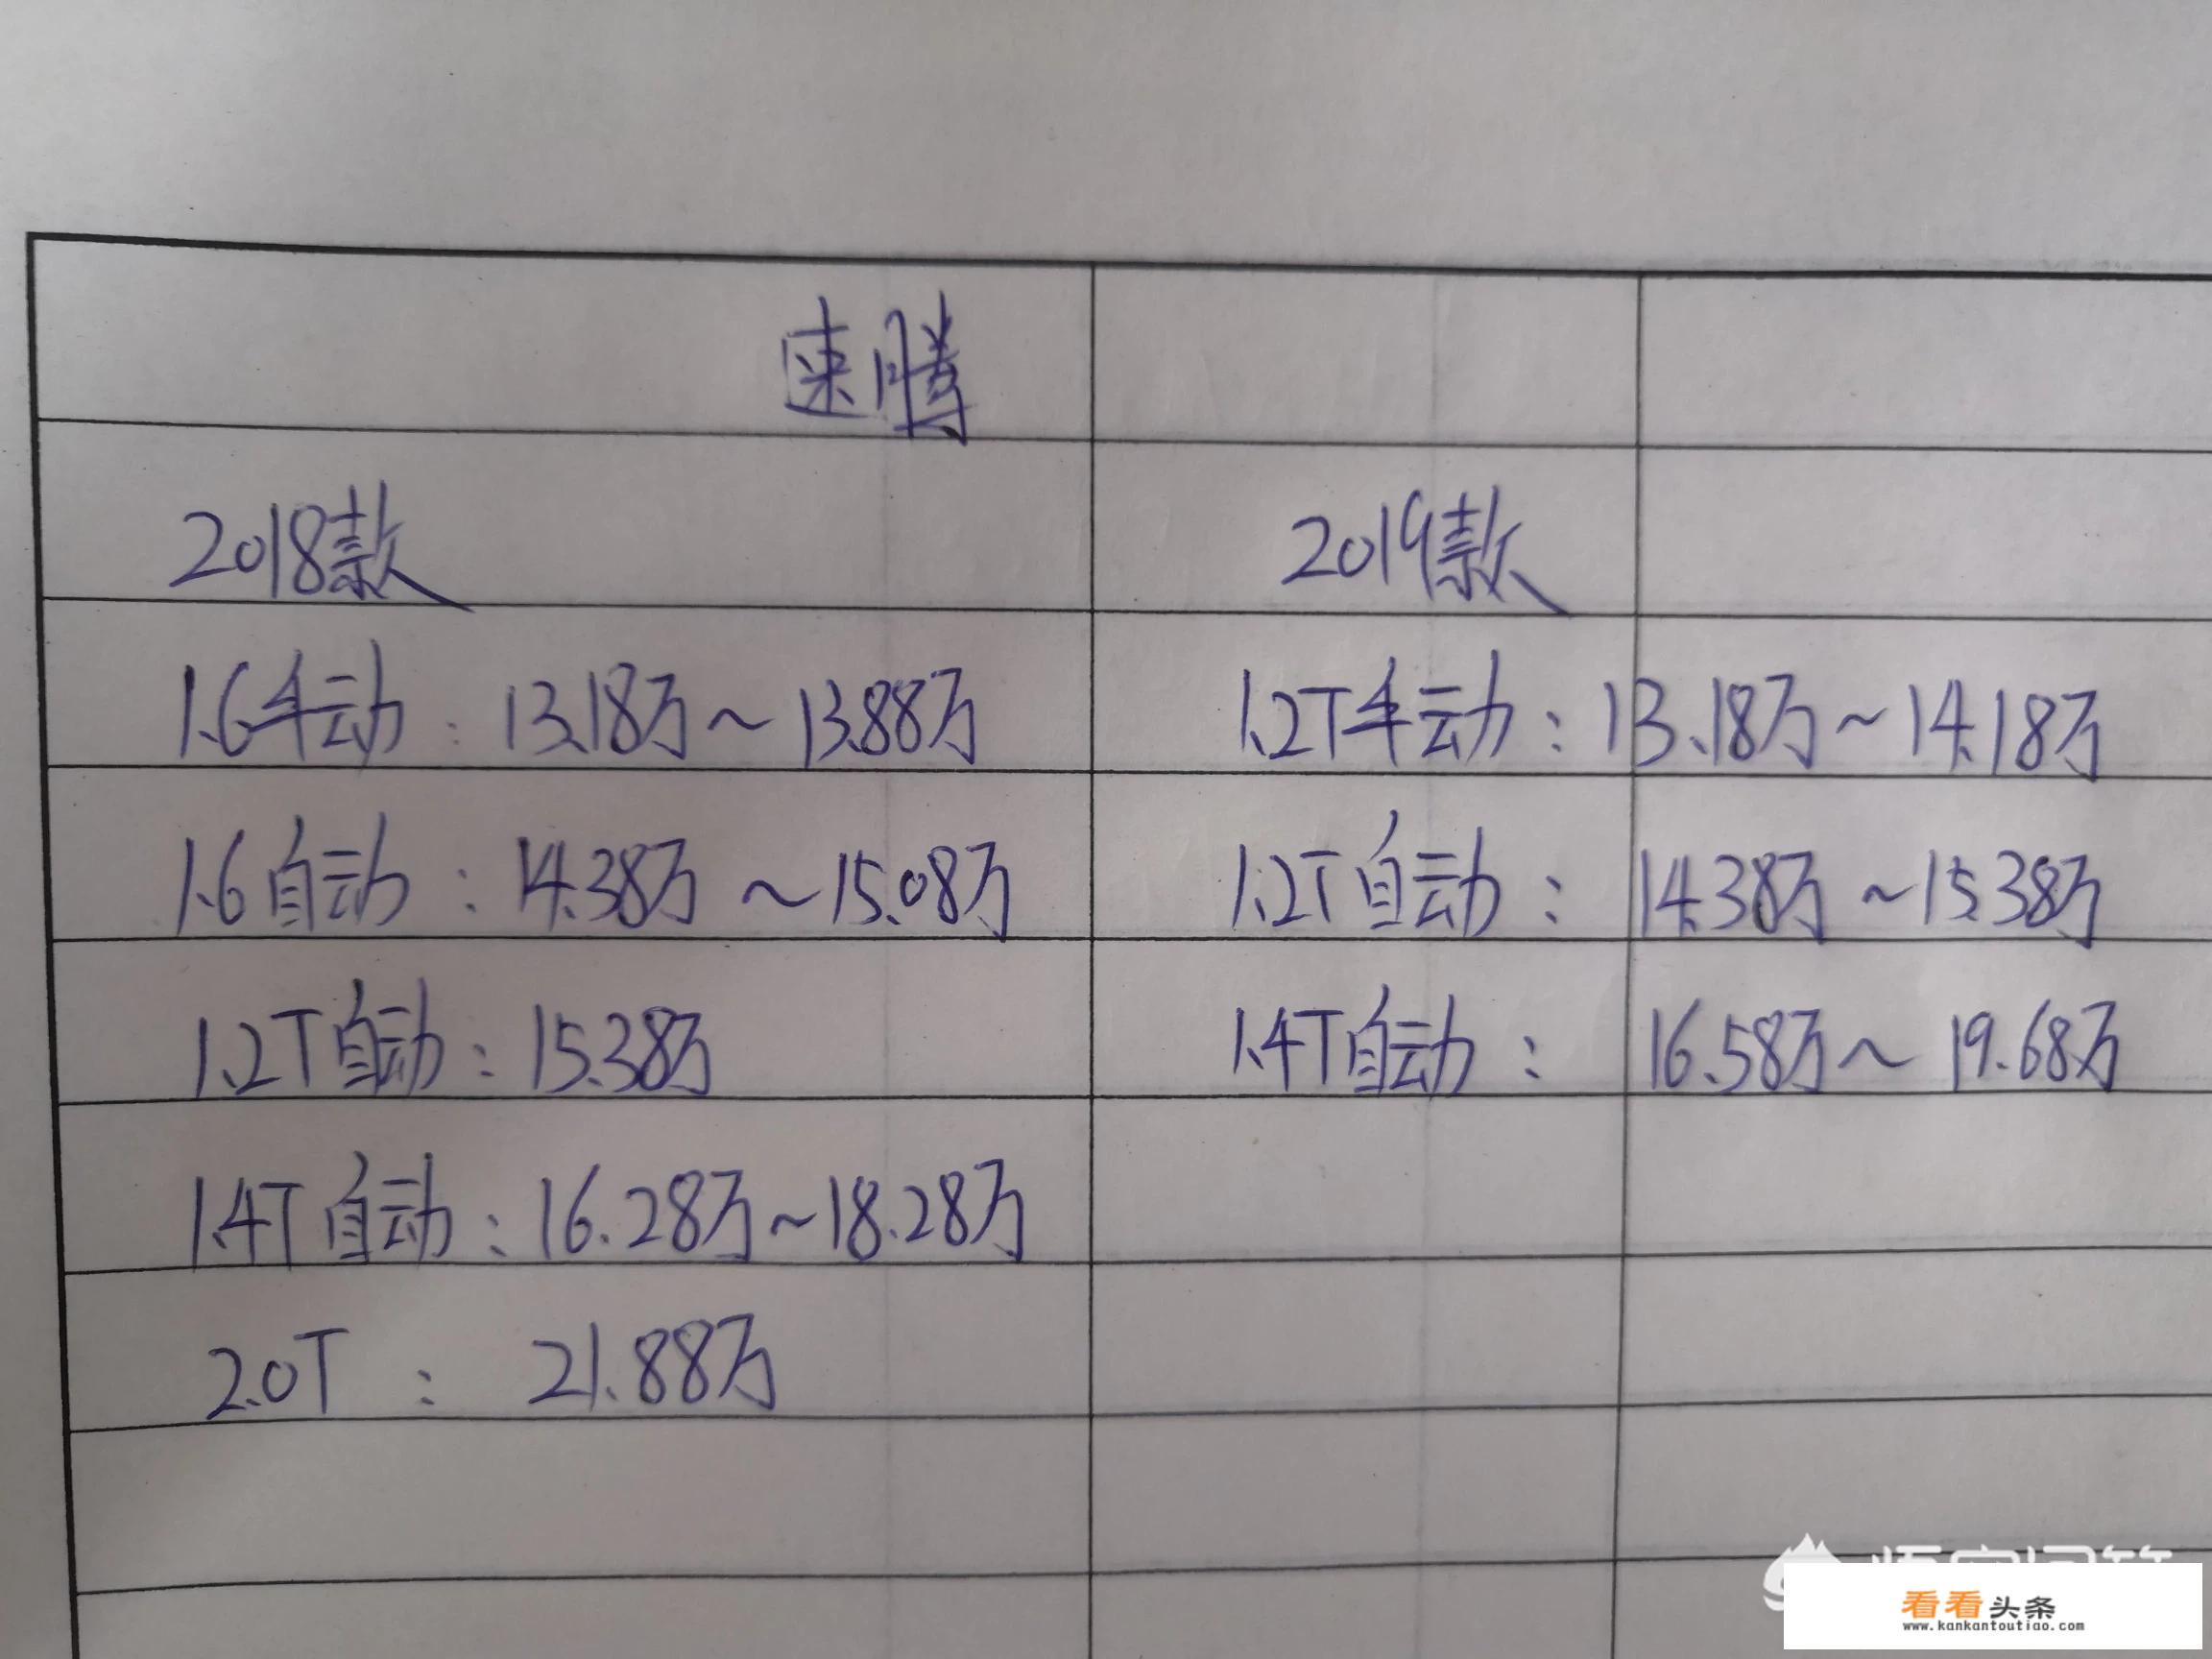 速腾
2018款 2019款
1.6手动：13.18万～13.88万 1.2T手动：13.18万～14.18万
1.6自动：14.38万～15.08万 1.2T自动：14.38万～15.38万
1.2T自动：15.38万 1.4T自动：16.58万～19.68万
1.4T自动：16.28万～18.28万
2.0T：21.88万
看看头条
www.kankantoutiao.com